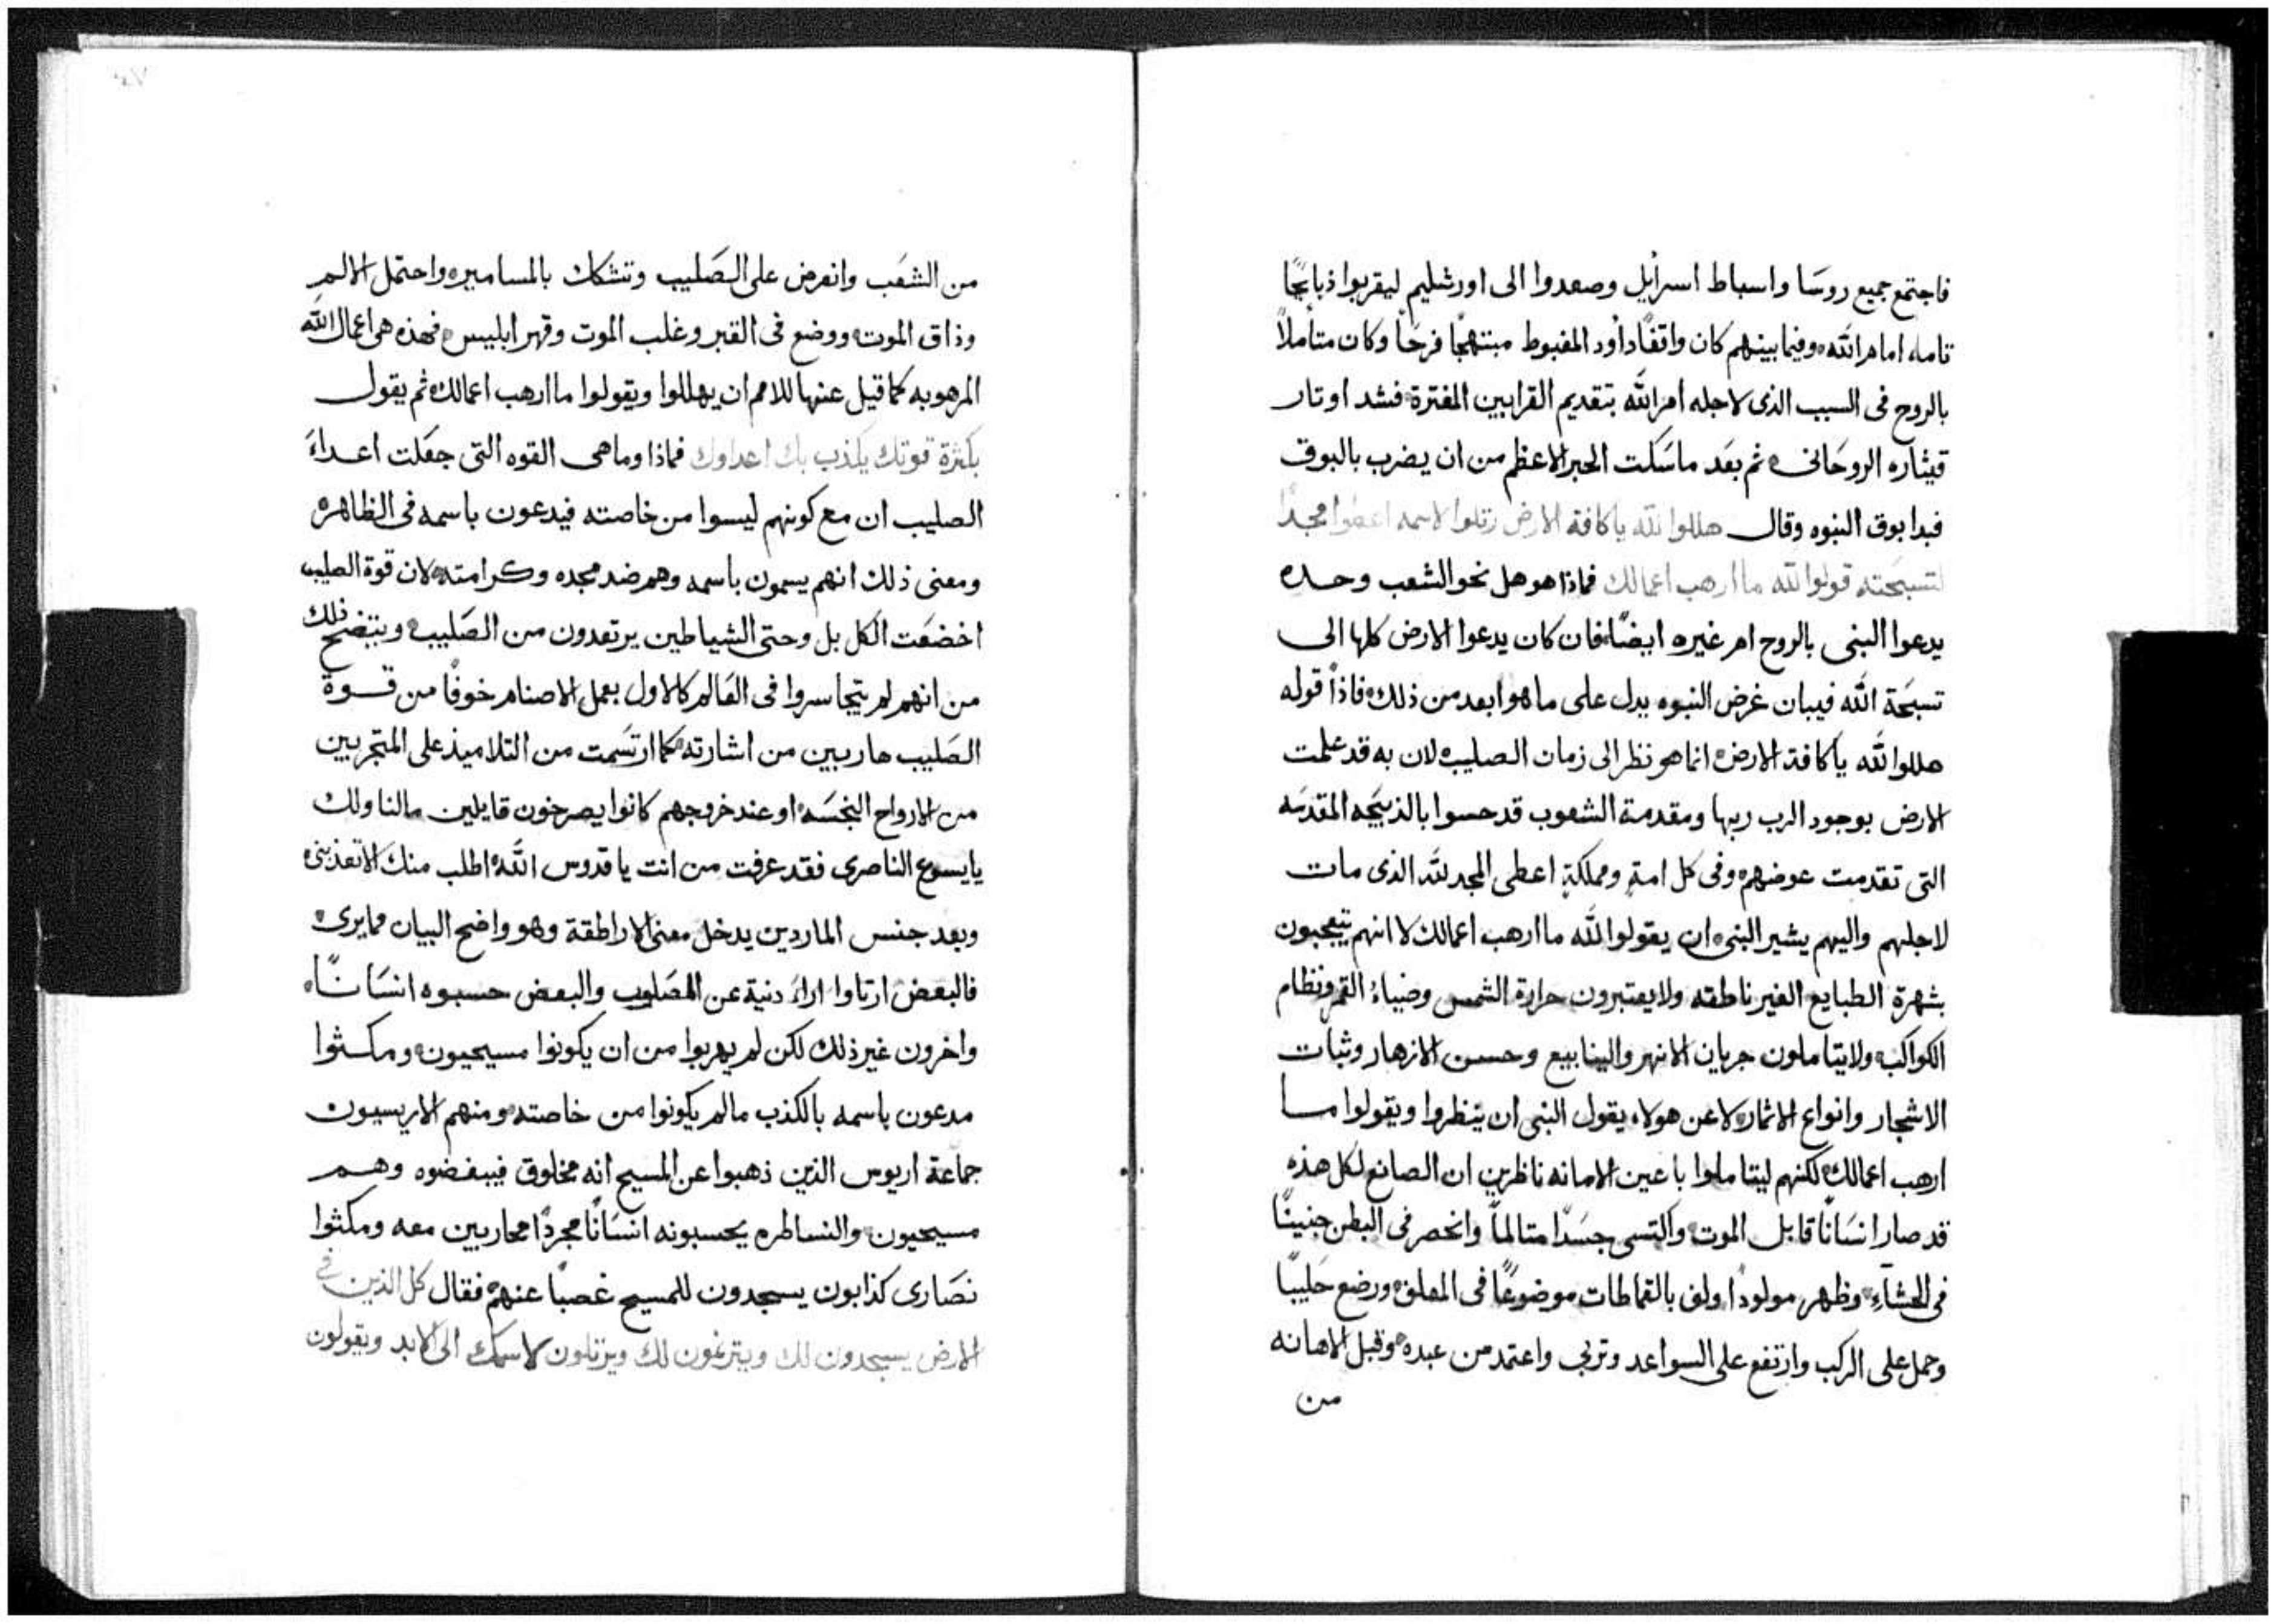 فاجتمع جميع روسا واسباط اسرايل وصعدوا الى اورشليم ليقربوا ذبايحًا
تامه امام الله وفيما بينهم كان واقفًا داود المغبوط مبتهجًا فرحًا وكان متأملاً
بالروح فى السبب الذى لاجله امر الله بتقديم القرابين المفترة فشد اوتار
قيثاره الروحانى ثم بعد ما سكت الحبر الاعظم من ان يضرب بالبوق
فبدا بوق النبوه وقال هللوا لله ياكافة الارض رتلوا لاسمه اعطوا مجدًا
لتسبحته قولوا لله ما ارهب اعمالك فماذا هو هل نحو الشعب وحده
يدعوا النبى بالروح ام غيره ايضًا فان كان يدعوا الارض كلها الى
تسبحة الله فيبان غرض النبوه يدل على ما هو ابعد من ذلك فاذًا قوله
هللوا لله ياكافة الارض انما هو نظر الى زمان الصليب لان به قد علمت
الارض بوجود الرب ربها ومقدمة الشعوب قد حسوا بالذبيحه المقدسه
التى تقدمت عوضهم وفى كل امةٍ ومملكةٍ اعطى المجد لله الذى مات
لاجلهم واليهم يشير النبى ان يقولوا لله ما ارهب اعمالك لا انهم يتعجبون
بشهرة الطبايع الغير ناطقه ولا يعتبرون حرارة الشمس وضياء القمر ونظام
الكواكب ولا يتاملون جريان الانهر والينابيع وحسن الازهار وثبات
الاشجار وانواع الاثمار لا عن هولاء يقول النبى ان ينظروا ويقولوا ما
ارهب اعمالك لكنهم ليتاملوا باعين الامانه ناظرين ان الصانع لكل هذه
قد صار انسانًا قابل الموت واكتسى جسدًا متالمًا وانحصر فى البطن جنينًا
فى الحشآءِ وظهر مولودًا ولف بالقماطات موضوعًا فى المعلف ورضع حليبًا
وحمل على الركب وارتفع على السواعد وتربى واعتمد من عبده وقبل الاهانه
من
من الشعب وانعرض على الصليب وتشكك بالمسامير واحتمل الالم
وذاق الموت ووضع فى القبر وغلب الموت وقهر ابليس فهذه هى اعمال الله
المرهوبه كما قيل عنها للامم ان يهللوا ويقولوا ما ارهب اعمالك ثم يقول
بكثرة قوتك يكذب بك اعداوك فماذا وما هى القوه التى جعلت اعداءَ
الصليب ان مع كونهم ليسوا من خاصته فيدعون باسمه فى الظاهر
ومعنى ذلك انهم يسمون باسمه وهم ضد مجده وكرامته لان قوة الصليب
اخضعت الكل بل وحتى الشياطين يرتعدون من الصليب ويتضح ذلك
من انهم لم يتجاسروا فى العالم كالاول بعمل الاصنام خوفًا من قوة
الصليب هاربين من اشارته كما ارتسمت من التلاميذ على المتجربين
من الارواح النجسه او عند خروجهم كانوا يصرخون قايلين مالنا ولك
يايسوع الناصرى فقد عرفت من انت يا قدوس الله اطلب منك الا تعذبنى
وبعد جنس الماردين يدخل معنى الاراطقة وهو واضح البيان مما يرى
فالبعض ارتاوا اراءَ دنية عن المصلوب والبعض حسبوه انسانًا
واخرون غير ذلك لكن لم يهربوا من ان يكونوا مسيحيون ومكثوا
مدعون باسمه بالكذب مالم يكونوا من خاصته ومنهم الاريسيون
جماعة اريوس الذين ذهبوا عن المسيح انه مخلوق فيبغضوه وهم
مسيحيون والنساطره يحسبونه انسانًا مجردًا محاربين معه ومكثوا
نصارى كذابون يسجدون للمسيح غصبًا عنهم فقال كل الذين فى
الارض يسجدون لك ويترنمون لك ويرتلون لاسمك الى الابد ويقولون